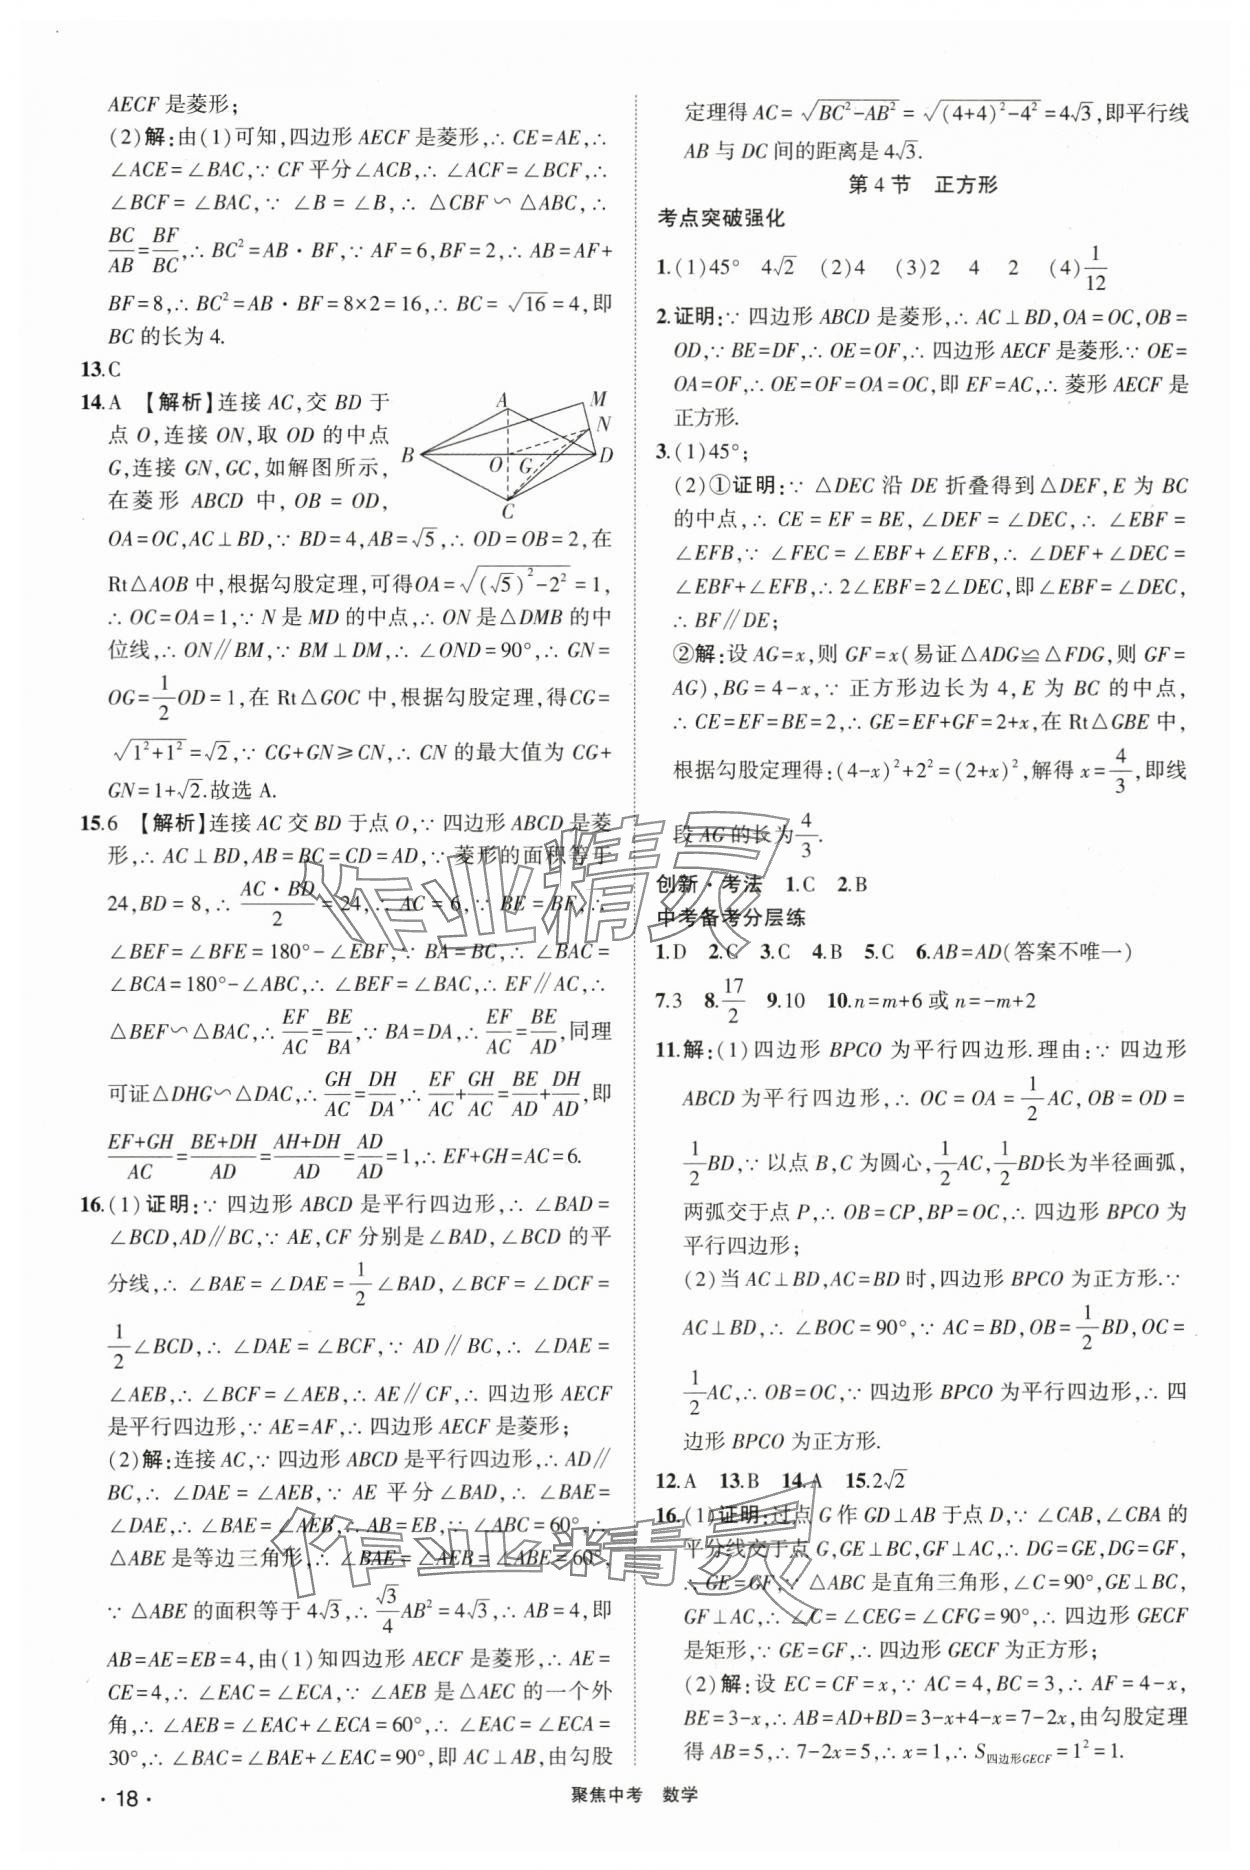 AECF 是菱形;
(2)解:由(1)可知,四边形 AECF 是菱形,∴ CE=AE,∴
∠ACE=∠BAC,∵ CF 平分∠ACB,∴ ∠ACF=∠BCF,∴
∠BCF=∠BAC,∵ ∠B=∠B,∴ △CBF∽△ABC,∴
BC/AB=BF/BC,∴ BC²=AB·BF,∵ AF=6,BF=2,∴ AB=AF+
BF=8,∴ BC²=AB·BF=8×2=16,∴ BC=√16=4,即
BC 的长为 4.
13.C
14.A 【解析】连接 AC,交 BD 于
点 O,连接 ON,取 OD 的中点
G,连接 GN,GC,如解图所示,
在菱形 ABCD 中,OB=OD,
A
M
N
B
O
G
D
C
OA=OC,AC⊥BD,∵ BD=4,AB=√5,∴ OD=OB=2,在
Rt△AOB 中,根据勾股定理,可得OA=√((√5)²-2²)=1,
∴ OC=OA=1,∵ N 是 MD 的中点,∴ ON 是△DMB 的中
位线,∴ ON∥BM,∵ BM⊥DM,∴ ∠OND=90°,∴ GN=
OG=1/2OD=1,在 Rt△GOC 中,根据勾股定理,得CG=
√(1²+1²)=√2,∵ CG+GN≥CN,∴ CN 的最大值为 CG+
GN=1+√2.故选 A.
15.6 【解析】连接 AC 交 BD 于点 O,∵ 四边形 ABCD 是菱
形,∴ AC⊥BD,AB=BC=CD=AD,∵ 菱形的面积等于
24,BD=8,∴ AC·BD/2=24,∴ AC=6,∵ BE=BF,∴
∠BEF=∠BFE=180°-∠EBF,∵ BA=BC,∴ ∠BAC=
∠BCA=180°-∠ABC,∴ ∠BEF=∠BAC,∴ EF∥AC,∴
△BEF∽△BAC,∴ EF/AC=BE/BA,∵ BA=DA,∴ EF/AC=BE/AD,同理
可证△DHG∽△DAC,∴ GH/AC=DH/DA,∴ EF/AC+GH/AC=BE/AD+DH/AD,即
(EF+GH)/AC=(BE+DH)/AD=(AH+DH)/AD=AD/AD=1,∴ EF+GH=AC=6.
16.(1)证明:∵ 四边形 ABCD 是平行四边形,∴ ∠BAD=
∠BCD,AD∥BC,∵ AE,CF 分别是∠BAD,∠BCD 的平
分线,∴ ∠BAE=∠DAE=1/2∠BAD,∠BCF=∠DCF=
1/2∠BCD,∴ ∠DAE=∠BCF,∵ AD∥BC,∴ ∠DAE=
∠AEB,∴ ∠BCF=∠AEB,∴ AE∥CF,∴ 四边形 AECF
是平行四边形,∵ AE=AF,∴ 四边形 AECF 是菱形;
(2)解:连接 AC,∵ 四边形 ABCD 是平行四边形,∴ AD∥
BC,∴ ∠DAE=∠AEB,∵ AE 平分∠BAD,∴ ∠BAE=
∠DAE,∴ ∠BAE=∠AEB,∴ AB=EB,∵ ∠ABC=60°,∴
△ABE 是等边三角形,∴ ∠BAE=∠AEB=∠ABE=60°,
∵ △ABE 的面积等于 4√3,∴ √3/4AB²=4√3,∴ AB=4,即
AB=AE=EB=4,由(1)知四边形 AECF 是菱形,∴ AE=
CE=4,∴ ∠EAC=∠ECA,∵ ∠AEB 是△AEC 的一个外
角,∴ ∠AEB=∠EAC+∠ECA=60°,∴ ∠EAC=∠ECA=
30°,∴ ∠BAC=∠BAE+∠EAC=90°,即 AC⊥AB,由勾股
定理得 AC=√(BC²-AB²)=√((4+4)²-4²)=4√3,即平行线
AB 与 DC 间的距离是 4√3.
第 4 节 正方形
考点突破强化
1.(1)45° 4√2 (2)4 (3)2 4 2 (4)1/12
2.证明:∵ 四边形 ABCD 是菱形,∴ AC⊥BD,OA=OC,OB=
OD,∵ BE=DF,∴ OE=OF,∴ 四边形 AECF 是菱形.∵ OE=
OA=OF,∴ OE=OF=OA=OC,即 EF=AC,∴ 菱形 AECF 是
正方形.
3.(1)45°;
(2)①证明:∵ △DEC 沿 DE 折叠得到△DEF,E 为 BC
的中点,∴ CE=EF=BE,∠DEF=∠DEC,∴ ∠EBF=
∠EFB,∵ ∠FEC=∠EBF+∠EFB,∴ ∠DEF+∠DEC=
∠EBF+∠EFB,∴ 2∠EBF=2∠DEC,即∠EBF=∠DEC,
∴ BF∥DE;
②解:设 AG=x,则 GF=x(易证△ADG≌△FDG,则 GF=
AG),BG=4-x,∵ 正方形边长为 4,E 为 BC 的中点,
∴ CE=EF=BE=2,∴ GE=EF+GF=2+x,在 Rt△GBE 中,
根据勾股定理得:(4-x)²+2²=(2+x)²,解得 x=4/3,即线
段 AG 的长为4/3.
创新·考法 1.C 2.B
中考备考分层练
1.D 2.C 3.C 4.B 5.C 6.AB=AD(答案不唯一)
7.3 8.17/2 9.10 10.n=m+6 或 n=-m+2
11.解:(1)四边形 BPCO 为平行四边形.理由:∵ 四边形
ABCD 为平行四边形,∴ OC=OA=1/2AC,OB=OD=
1/2BD,∵ 以点 B,C 为圆心,1/2AC,1/2BD长为半径画弧,
两弧交于点 P,∴ OB=CP,BP=OC,∴ 四边形 BPCO 为
平行四边形;
(2)当 AC⊥BD,AC=BD 时,四边形 BPCO 为正方形.∵
AC⊥BD,∴ ∠BOC=90°,∵ AC=BD,OB=1/2BD,OC=
1/2AC,∴ OB=OC,∵ 四边形 BPCO 为平行四边形,∴ 四
边形 BPCO 为正方形.
12.A 13.B 14.A 15.2√2
16.(1)证明:过点 G 作 GD⊥AB 于点 D,∵ ∠CAB,∠CBA 的
平分线交于点 G,GE⊥BC,GF⊥AC,∴ DG=GE,DG=GF,
∴ GE=GF,∵ △ABC 是直角三角形,∠C=90°,GE⊥BC,
GF⊥AC,∴ ∠C=∠CEG=∠CFG=90°,∴ 四边形 GECF
是矩形,∵ GE=GF,∴ 四边形 GECF 为正方形;
(2)解:设 EC=CF=x,∵ AC=4,BC=3,∴ AF=4-x,
BE=3-x,∴ AB=AD+BD=3-x+4-x=7-2x,由勾股定理
得 AB=5,∴ 7-2x=5,∴ x=1,∴ S四边形GECF=1²=1.
作业精灵
作业精灵
·18·
聚焦中考 数学